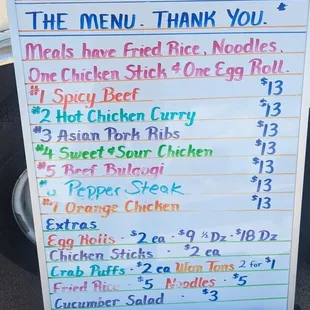 THE MENU. THANK YOU.
Meals have Fried Rice, Noodles,
One Chicken Stick & One Egg Roll.
#1 Spicy Beef $13
#2 Hot Chicken Curry $13
#3 Asian Pork Ribs $13
#4 Sweet & Sour Chicken $13
#5 Beef Bulgogi $13
Pepper Steak $13
Orange Chicken $13
Extras
Egg Rolls · $2 ea · $9 ½ Dz · $18 Dz
Chicken Sticks · $2 ea
Crab Puffs · $2 ea Won Tons 2 for $1
Fried Rice · $5 Noodles · $5
Cucumber Salad · $3